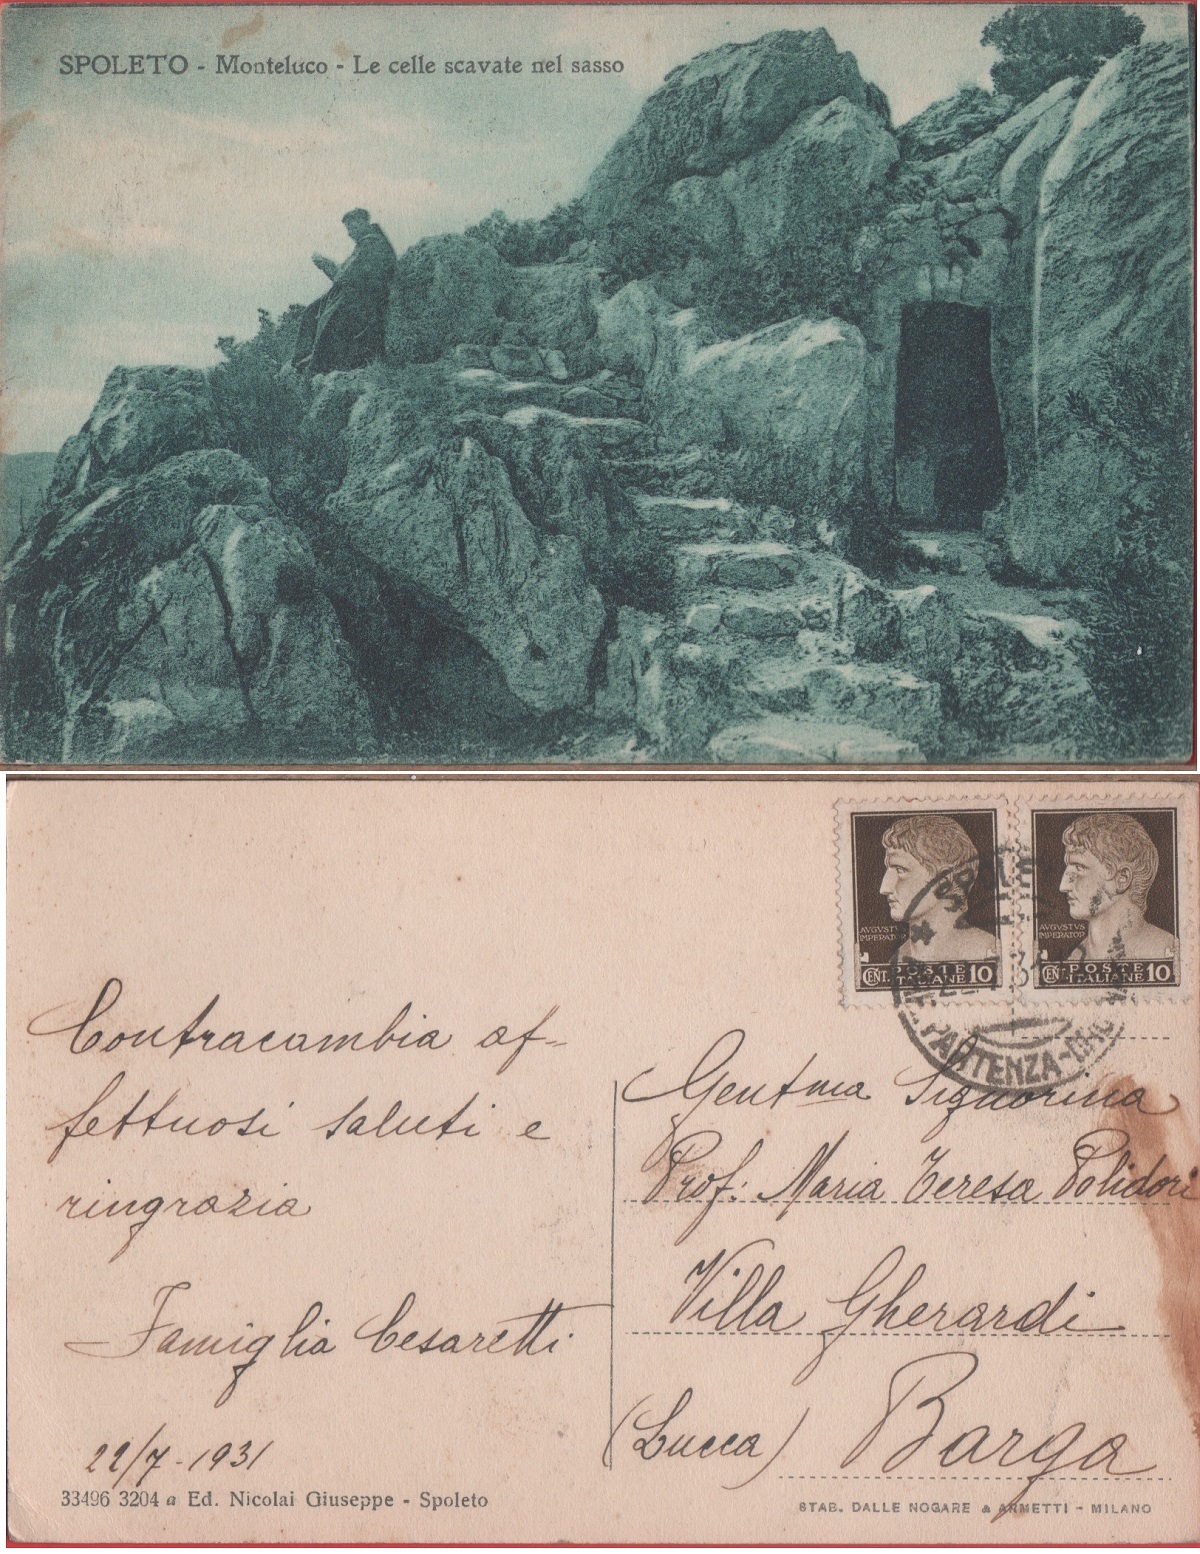 SPOLETO - Monteluco - Le celle scavate nel sasso
AVGVSTVS
IMPERATOR
CENT. POSTE
ITALIANE 10
AVGVSTVS
IMPERATOR
CENT. POSTE
ITALIANE 10
PARTENZA
Contracambia af-
fettuosi saluti e
ringrazia
Famiglia Cesaretti
22/7-1931
Gentma Signorina
Prof: Maria Teresa Polidori
Villa Gherardi
(Lucca) Barga
33496 3204 a Ed. Nicolai Giuseppe - Spoleto
STAB. DALLE NOGARE & ARMETTI - MILANO